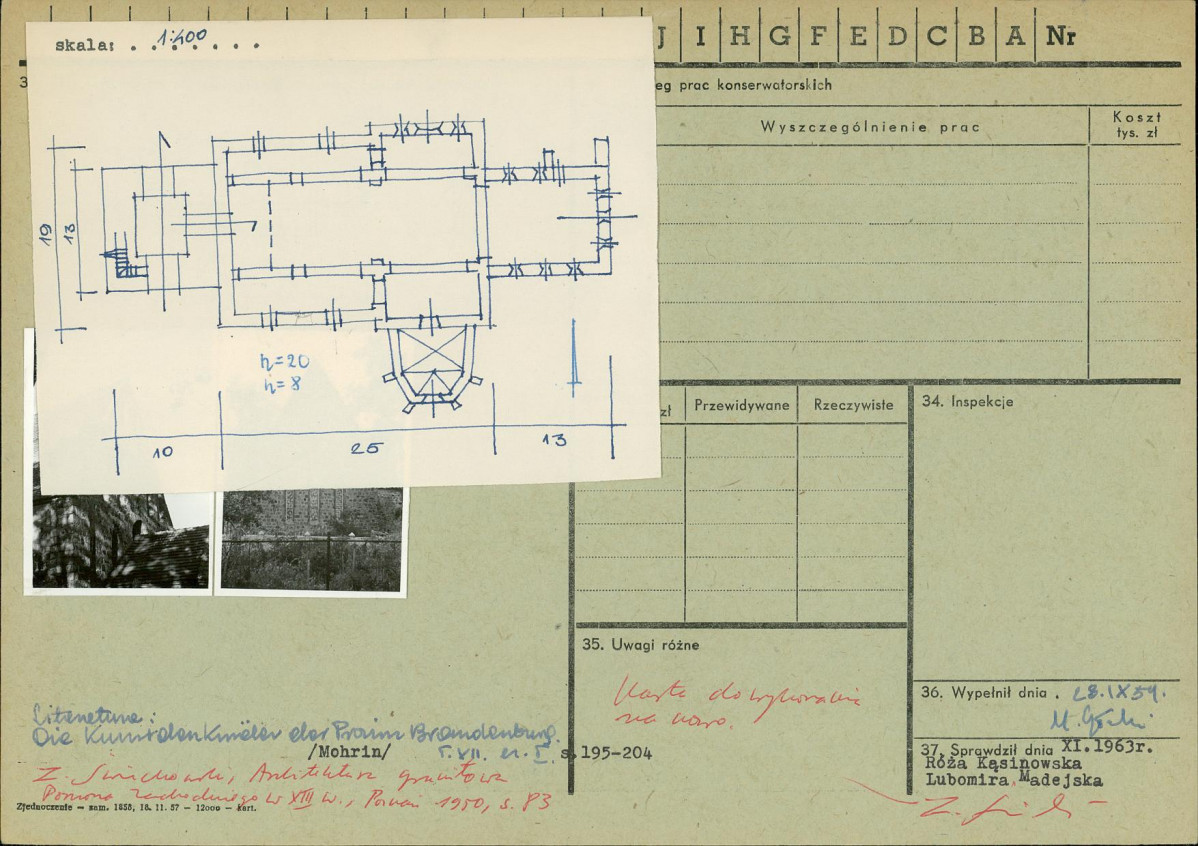 skala: 1:400
J I H G F E D C B A Nr
3
eg prac konserwatorskich
Wyszczególnienie prac
Koszt
tys. zł
19
13
h=20
h=8
10 25 13
zł
Przewidywane
Rzeczywiste
34. Inspekcje
35. Uwagi różne
Karta do wykonania
na nowo.
36. Wypełnił dnia . 28.IX 59.
37. Sprawdził dnia XI.1963r.
Róża Kąsinowska
Lubomira Madejska
Literatura:
Die Kunstdenkmäler der Provinz Brandenburg.
/Mohrin/ T. VII. s. 195-204
Z. Świechowski, Architektura granitowa
Pomorza Zachodniego w XIII w., Poznań 1950, s. 83
Zjednoczenie — zam. 1858, 18. 11. 57 — 12000 — kart.